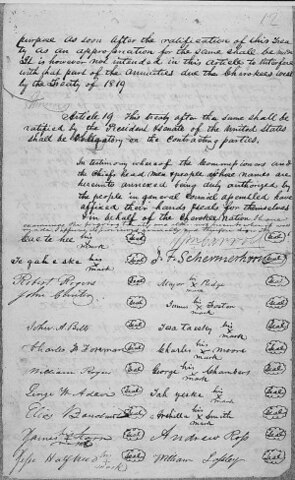 12
purpose as soon after the ratification of this Trea
ty as an appropriation for the same shall be made
It is however not intended in this article to interfere
with that part of the annuities due the Cherokees west
by the Treaty of 1819
Article 19. This treaty after the same shall be
ratified by the President & Senate of the United States
shall be obligatory on the contracting parties.
In testimony whereof the Commissioners and
the Chiefs head men & people whose names are
hereunto annexed being duly authorized by
the people in general council assembled have
affixed their hands & seals for themselves
& in behalf of the Cherokee Nation
Cae te hee his x mark Seal
Te gah e ske his x mark Seal J. F. Schermerhorn Seal
Robert Rogers Seal Major his x mark Ridge Seal
John Gunter Seal James his x mark Foster Seal
John A. Bell Seal Tesa Taesky his x mark Seal
Charles F Foreman Seal Charles his x mark Moore Seal
William Rogers Seal George his x mark Chambers Seal
George W. Adair Seal Tah yeske his x mark Seal
Elias Boudinot Seal Archilla his x mark Smith Seal
James his x mark Starr Seal Andrew Ross Seal
Jesse Halfbreed his x mark Seal William Lassley Seal